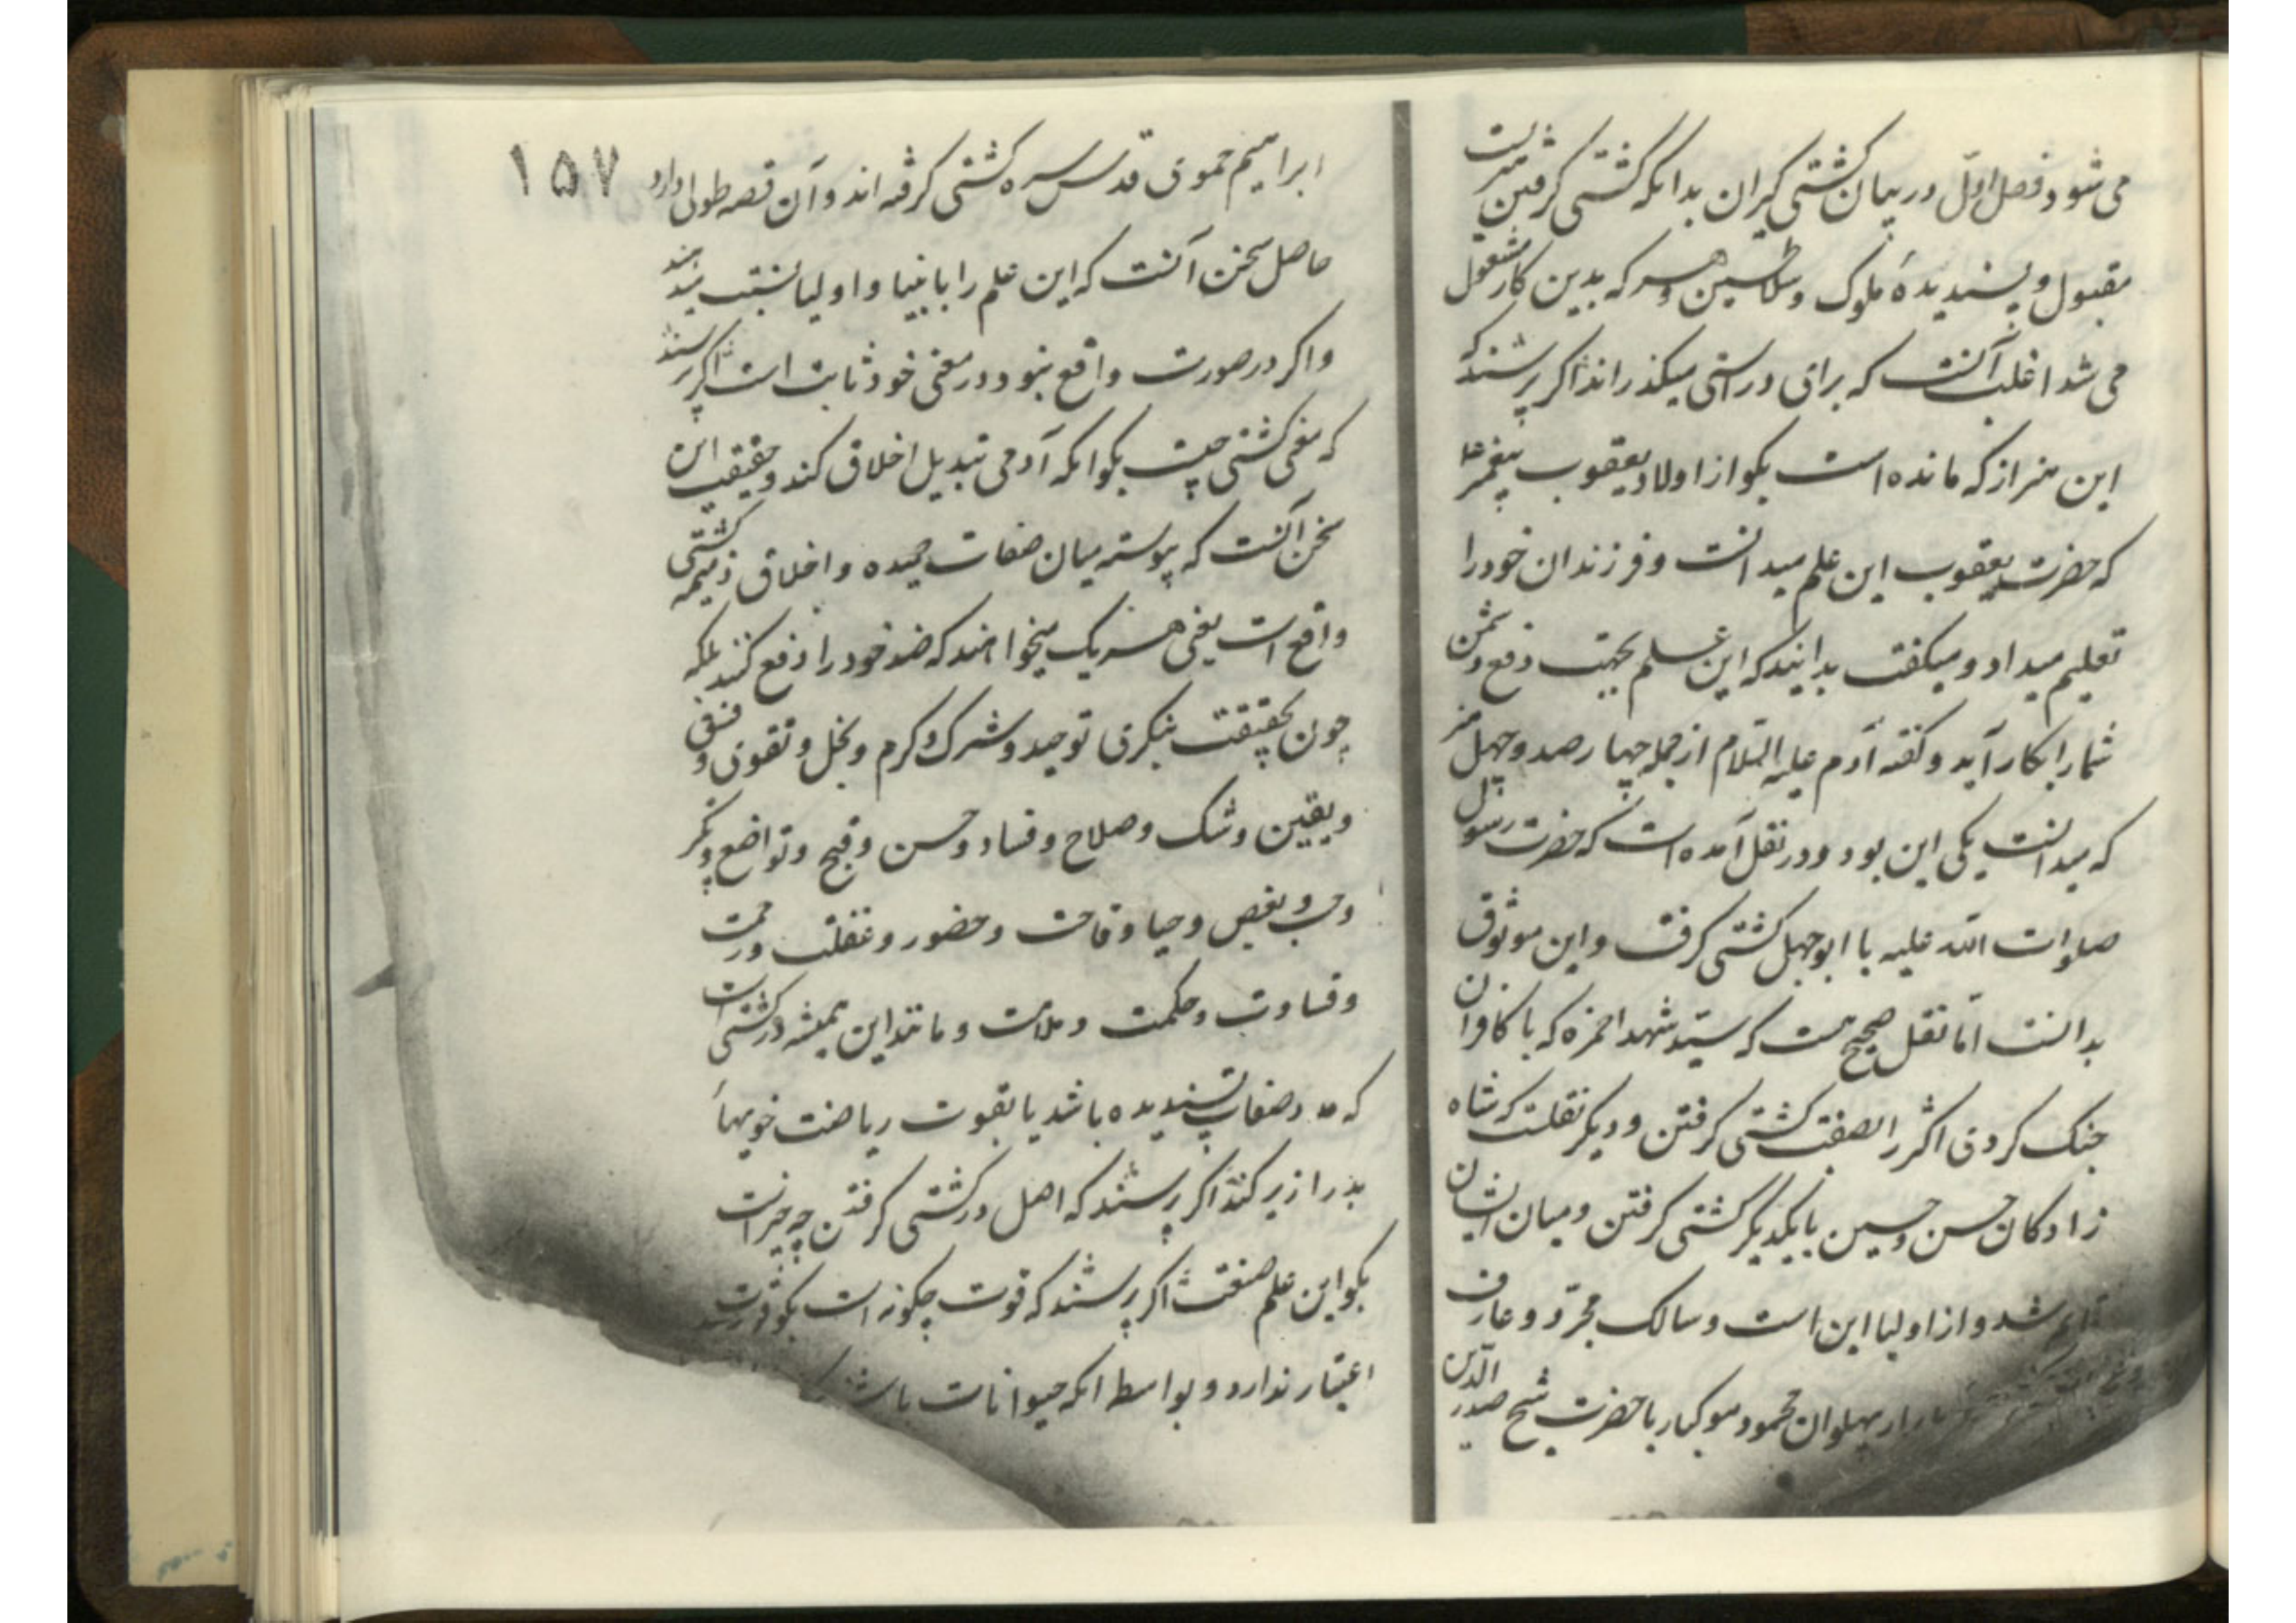 می شود فصل اول در بیان کشتی کیران بدانکه کشتی کرفتن هنریست
مقبول و پسندیدهٔ ملوک و سلاطین و هر که بدین کار مشغول
می شد اغلب آنست که برای در راستی میکذراند اکر پرسند که
این هنر از که مانده است بکو از اولاد یعقوب پیغمبر ع
که حضرت یعقوب این علم میدانست و فرزندان خود را
تعلیم میداد و میکفت بدانید که این علم بجهت دفع دشمن
شما را بکار آید و کفته آدم علیه السلام از جمله چهارصد و چهل هنر
که میدانست یکی این بود و در نقل آمده است که حضرت رسول
صلوات الله علیه با ابوجهل کشتی کرفت و این موثوق
بدانست اما نقل صحیح هست که سید شهدا حمزه که با کافران
جنک کردی اکثر را بصفت کشتی کرفتن و دیکر نقلست که شاه
زادکان حسن و حسین با یکدیکر کشتی کرفتن و میان ایشان
شد و از اولیا این است و سالک مجرد و عارف
پهلوان محمود بوکیار با حضرت شیخ صدر الدین
ابراهیم حموی قدس سره کشتی کرفته اند و آن قصه طولی دارد
۱۵۷
حاصل سخن آنست که این علم را بانبیا و اولیا نسبت میدهند
و اکر در صورت واقع نبود در معنی خود ثابت است اکر پرسند
که معنی کشتی چیست بکو انکه آدمی تبدیل اخلاق کند و حقیقت این
سخن آنست که پیوسته میان صفات حمیده و اخلاق ذمیمه کشتی
واقع است یعنی هر یک میخواهند که ضد خود را دفع کنند بلکه
چون بحقیقت بنکری توحید و شرک و کرم و بخل و تقوی و فسق
و یقین و شک و صلاح و فساد و حسن و قبح و تواضع و تکبر
و حب و بغض و حیا و قاحت و حضور و غفلت و رحمت
و قساوت و حکمت و ملامت و مانند این همیشه در کشتی است
که صفات پسندیده باشد یا بقوت ریاضت خویهاٴ
بد را زیر کند اکر پرسند که اصل در کشتی کرفتن چه چیز است
بکو این علم صنعت اکر پرسند که قوت چکونه است بکو قوت
اعتبار ندارد و بواسطه انکه حیوانات باشد